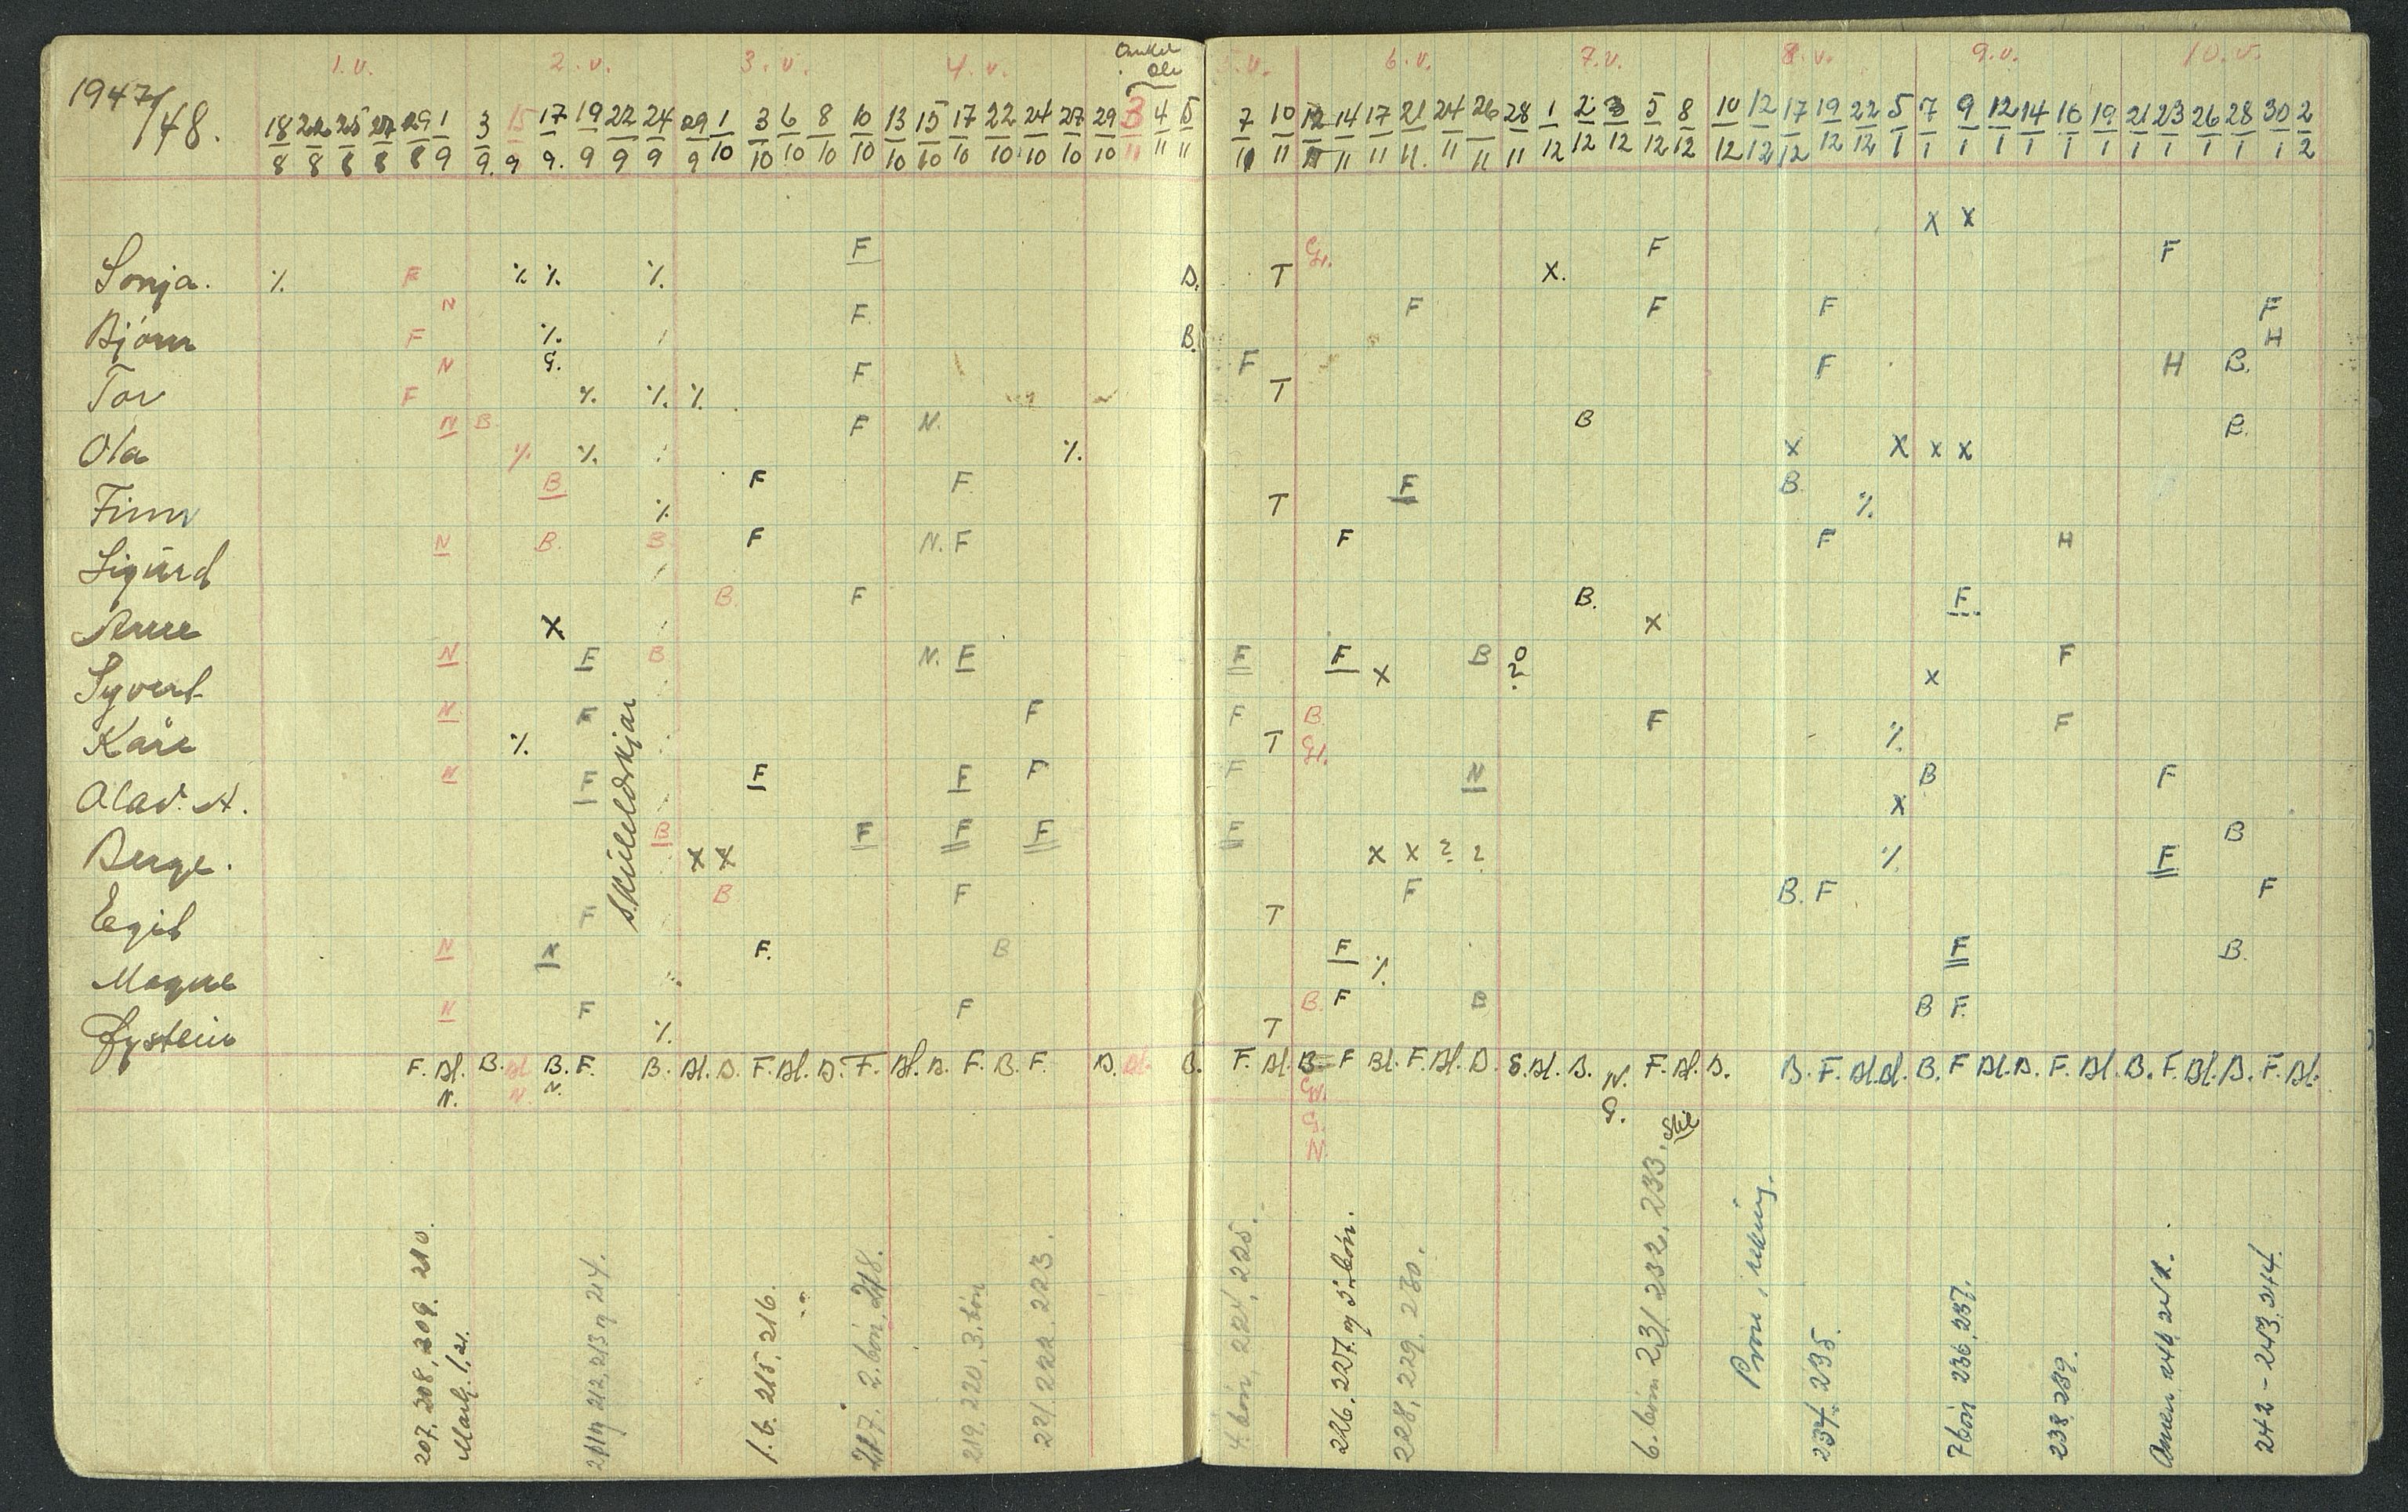 1947/48.
1.v. 2.v. 3.v. 4.v. Onkel Ole 5.v. 6.v. 7.v. 8.v. 9.v. 10.v.
18 22 25 27 29 1 3 15 17 19 22 24 29 1 3 6 8 10 13 15 17 22 24 27 29 3 4 5 7 10 12 14 17 21 24 26 28 1 2 3 5 8 10 12 17 19 22 5 7 9 12 14 16 19 21 23 26 28 30 2
8 8 8 8 8 9 9. 9 9. 9 9 9 9 10 10 10 10 10 10 10 10 10 10 10 10 11 11 11 11 11 11 11 11 11. 11 11 11 12 12 12 12 12 12 12 12 12 12 1 1 1 1 1 1 1 1 1 1 1 1 2
x x
F Gr. F F
Sonja. % F % % % B. T x.
N F. F F F F
Bjørn F % B. H
N G. F F F H B.
Tor F % % % T
N B. F N. B B.
Ola % % % x x x x
B F F F B
Finn % T %
N B. B F N. F F F H
Sigurd
B. F B. F
Arne x x
N F B N. F F F B 0 F
Syvert x ? x
N F F F B. F F
Kåre % T Gr. %
N F F F F F N B F
Olav A. x
B F F F F B
Berge. x x x x ? ? % F
F B F F B. F F
Egil T
N N F. B F F B.
Magne %
N F F B. F B B F.
Øystein % T
F. Bl. B. Bl B. F. B. Bl. B. F. Bl. B. F. Bl. B. F. B. F. B. Bl. B. F. Bl. B. F Bl. F. Bl. B. S. Bl. B. N. F. Bl. B. B. F. Bl. Bl. B. F Bl. B. F. Bl. B. F. Bl. B. F. Bl.
N. N. N. G.
N.
Skuleldskjør
207, 208, 209. 210.
212, 213 og 214.
1. b. 215, 216.
217. 2. bøn, 218.
219. 220, 3. bøn
221. 222. 223.
4. bøn, 224, 225.
226, 227. og 5. bøn.
228, 229, 230.
6. bøn 231 232, 233. Stil
Prøve i rekning.
234. 235.
7 bøn 236, 237.
238. 239.
Amen 240 241.
242 - 243, 244.